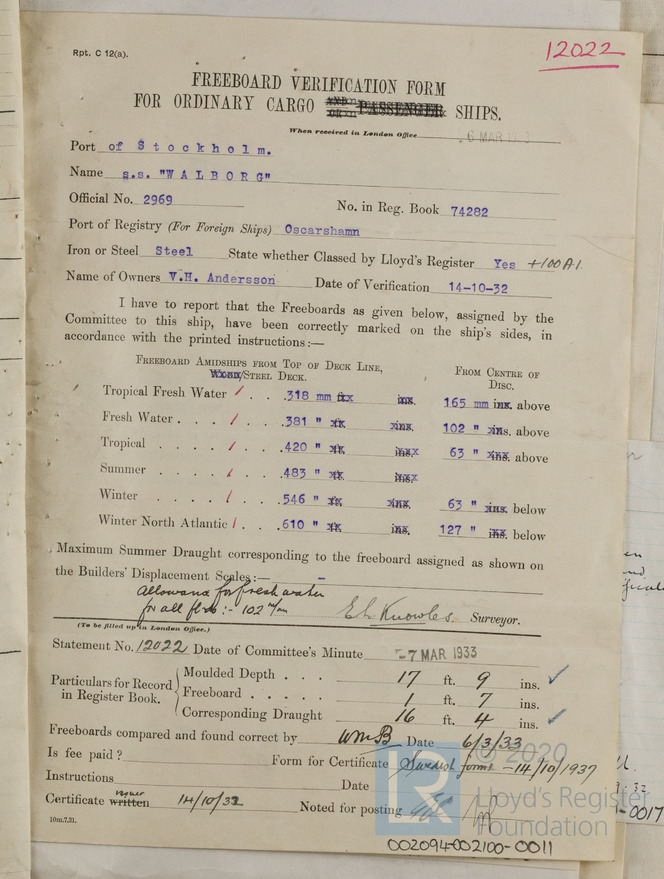 Rpt. C 12(a).
12022
FREEBOARD VERIFICATION FORM
FOR ORDINARY CARGO AND OR PASSENGER SHIPS.
When received in London Office 6 MAR 1933
Port of Stockholm.
Name s.s. "WALBORG"
Official No. 2969 No. in Reg. Book 74282
Port of Registry (For Foreign Ships) Oscarshamn
Iron or Steel Steel State whether Classed by Lloyd's Register Yes +100A1.
Name of Owners V.H. Andersson Date of Verification 14-10-32
I have to report that the Freeboards as given below, assigned by the
Committee to this ship, have been correctly marked on the ship's sides, in
accordance with the printed instructions:—
FREEBOARD AMIDSHIPS FROM TOP OF DECK LINE, FROM CENTRE OF
WOOD/STEEL DECK. DISC.
Tropical Fresh Water / . . . 318 mm ft. ins. 165 mm ins. above
Fresh Water . . . / . . 381 " ft. ins. 102 " ins. above
Tropical . . . . / . . 420 " ft. ins. 63 " ins. above
Summer . . . . / . . 483 " ft. ins.
Winter . . . . / . . 546 " ft. ins. 63 " ins. below
Winter North Atlantic / . . . 610 " ft. ins. 127 " ins. below
Maximum Summer Draught corresponding to the freeboard assigned as shown on
the Builders' Displacement Scales:— –
Allowance for fresh water
for all flbds:- 102 m/m E L Knowles. Surveyor.
(To be filled up in London Office.)
Statement No. 12022 Date of Committee's Minute -7 MAR 1933
Particulars for Record in Register Book.
Moulded Depth . . . 17 ft. 9 ins. ✓
Freeboard . . . . . 1 ft. 7 ins.
Corresponding Draught 16 ft. 4 ins. ✓
Freeboards compared and found correct by WMB Date 6/3/33
Is fee paid? Form for Certificate Swedish forms - 14/10/1937
Instructions Date
Certificate written 14/10/32 Noted for posting
10m,7.31.
© 2020
LR
Lloyd's Register
Foundation
002094-002100-0011
-0017